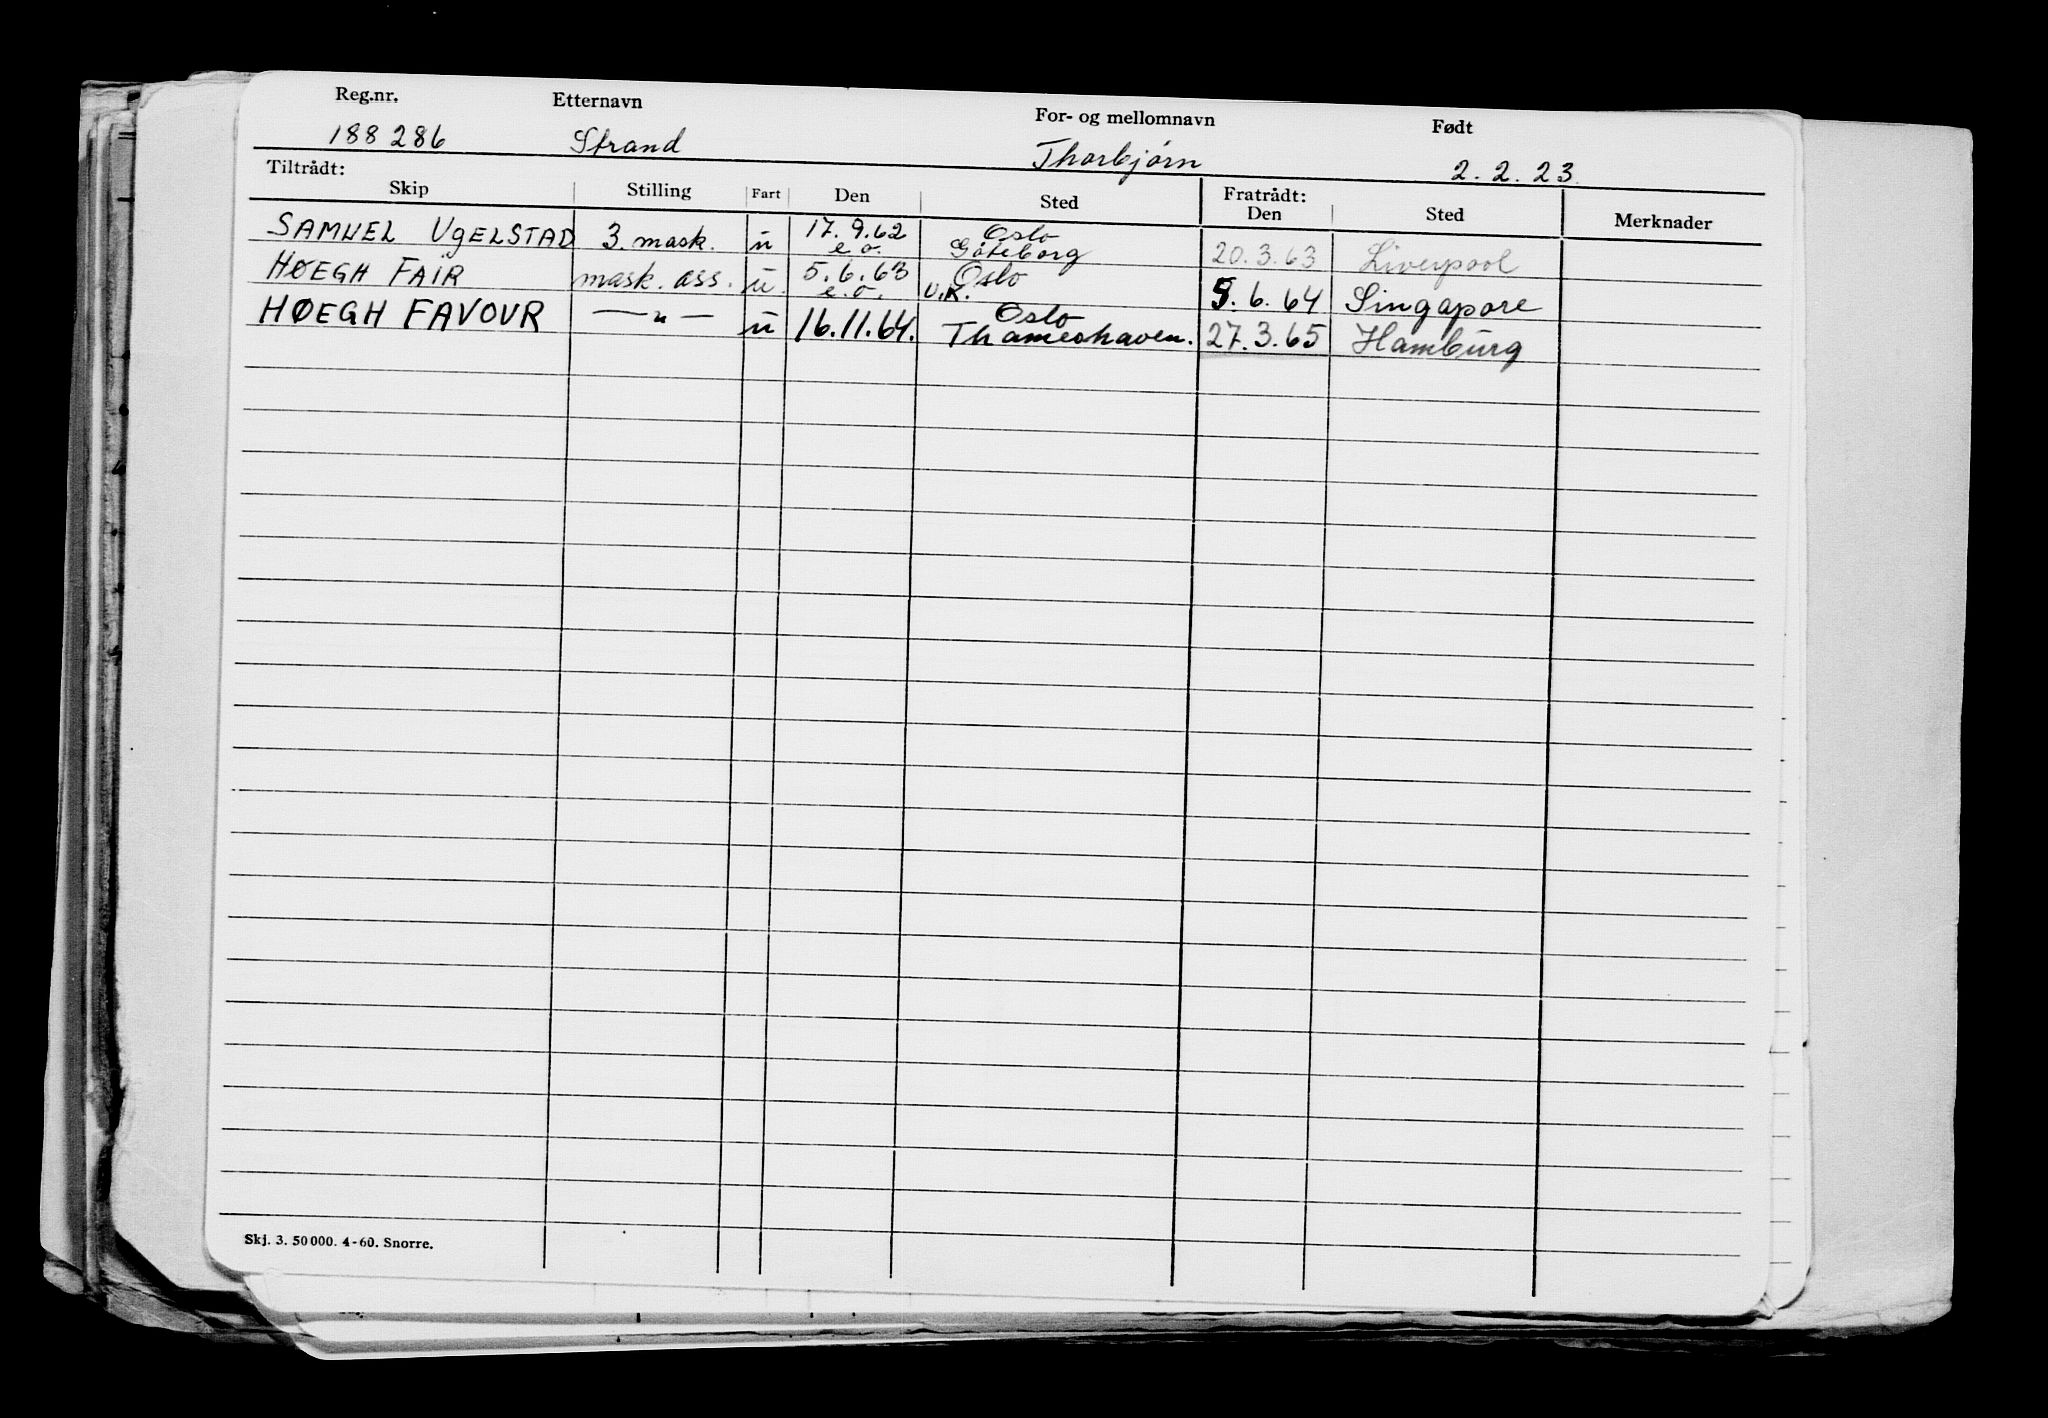 Reg.nr. Etternavn For- og mellomnavn Født
188286 Strand Thorbjørn 2.2.23.
Tiltrådt: Fratrådt:
Skip Stilling Fart Den Sted Den Sted Merknader
SAMUEL UGELSTAD 3. mask. u 17.9.62 e.o. Oslo Göteborg 20.3.63 Liverpool
HØEGH FAIR mask. ass. u. 5.6.63 e.o. Oslo U.K. 5.6.64 Singapore
HØEGH FAVOUR —"— u 16.11.64. Oslo Thameshaven. 27.3.65 Hamburg
Skj. 3. 50000. 4-60. Snorre.